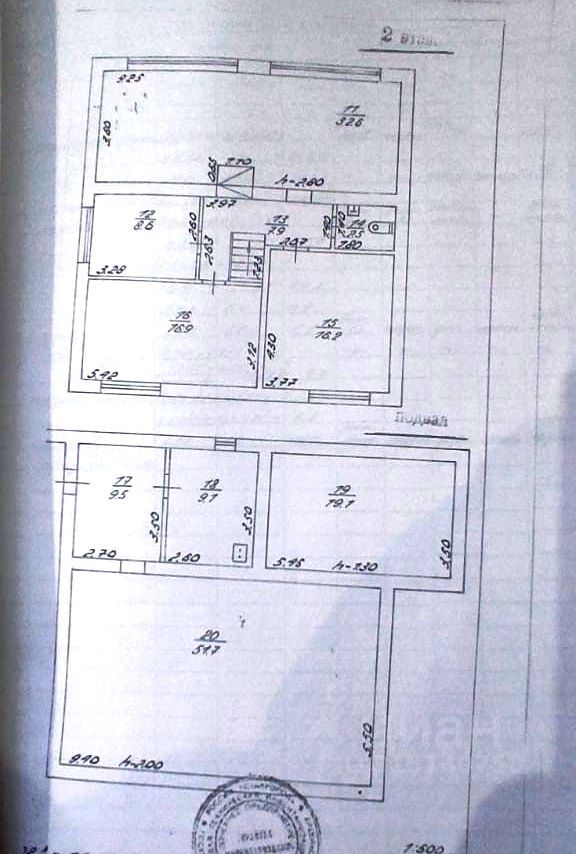 2 этаж
9.25
3.60
11
32.6
0.65
1.10
h-2.60
3.97
12
8.6
3.28
2.60
2.63
13
7.9
1.40
1.40
14
2.5
1.80
2.07
2.23
16
16.9
5.42
3.12
15
16.2
4.30
3.77
Подвал
17
9.5
2.70
3.50
18
9.1
2.60
3.50
19
19.1
5.45
h-2.30
3.50
20
51.7
9.40
h-2.00
5.50
1:500